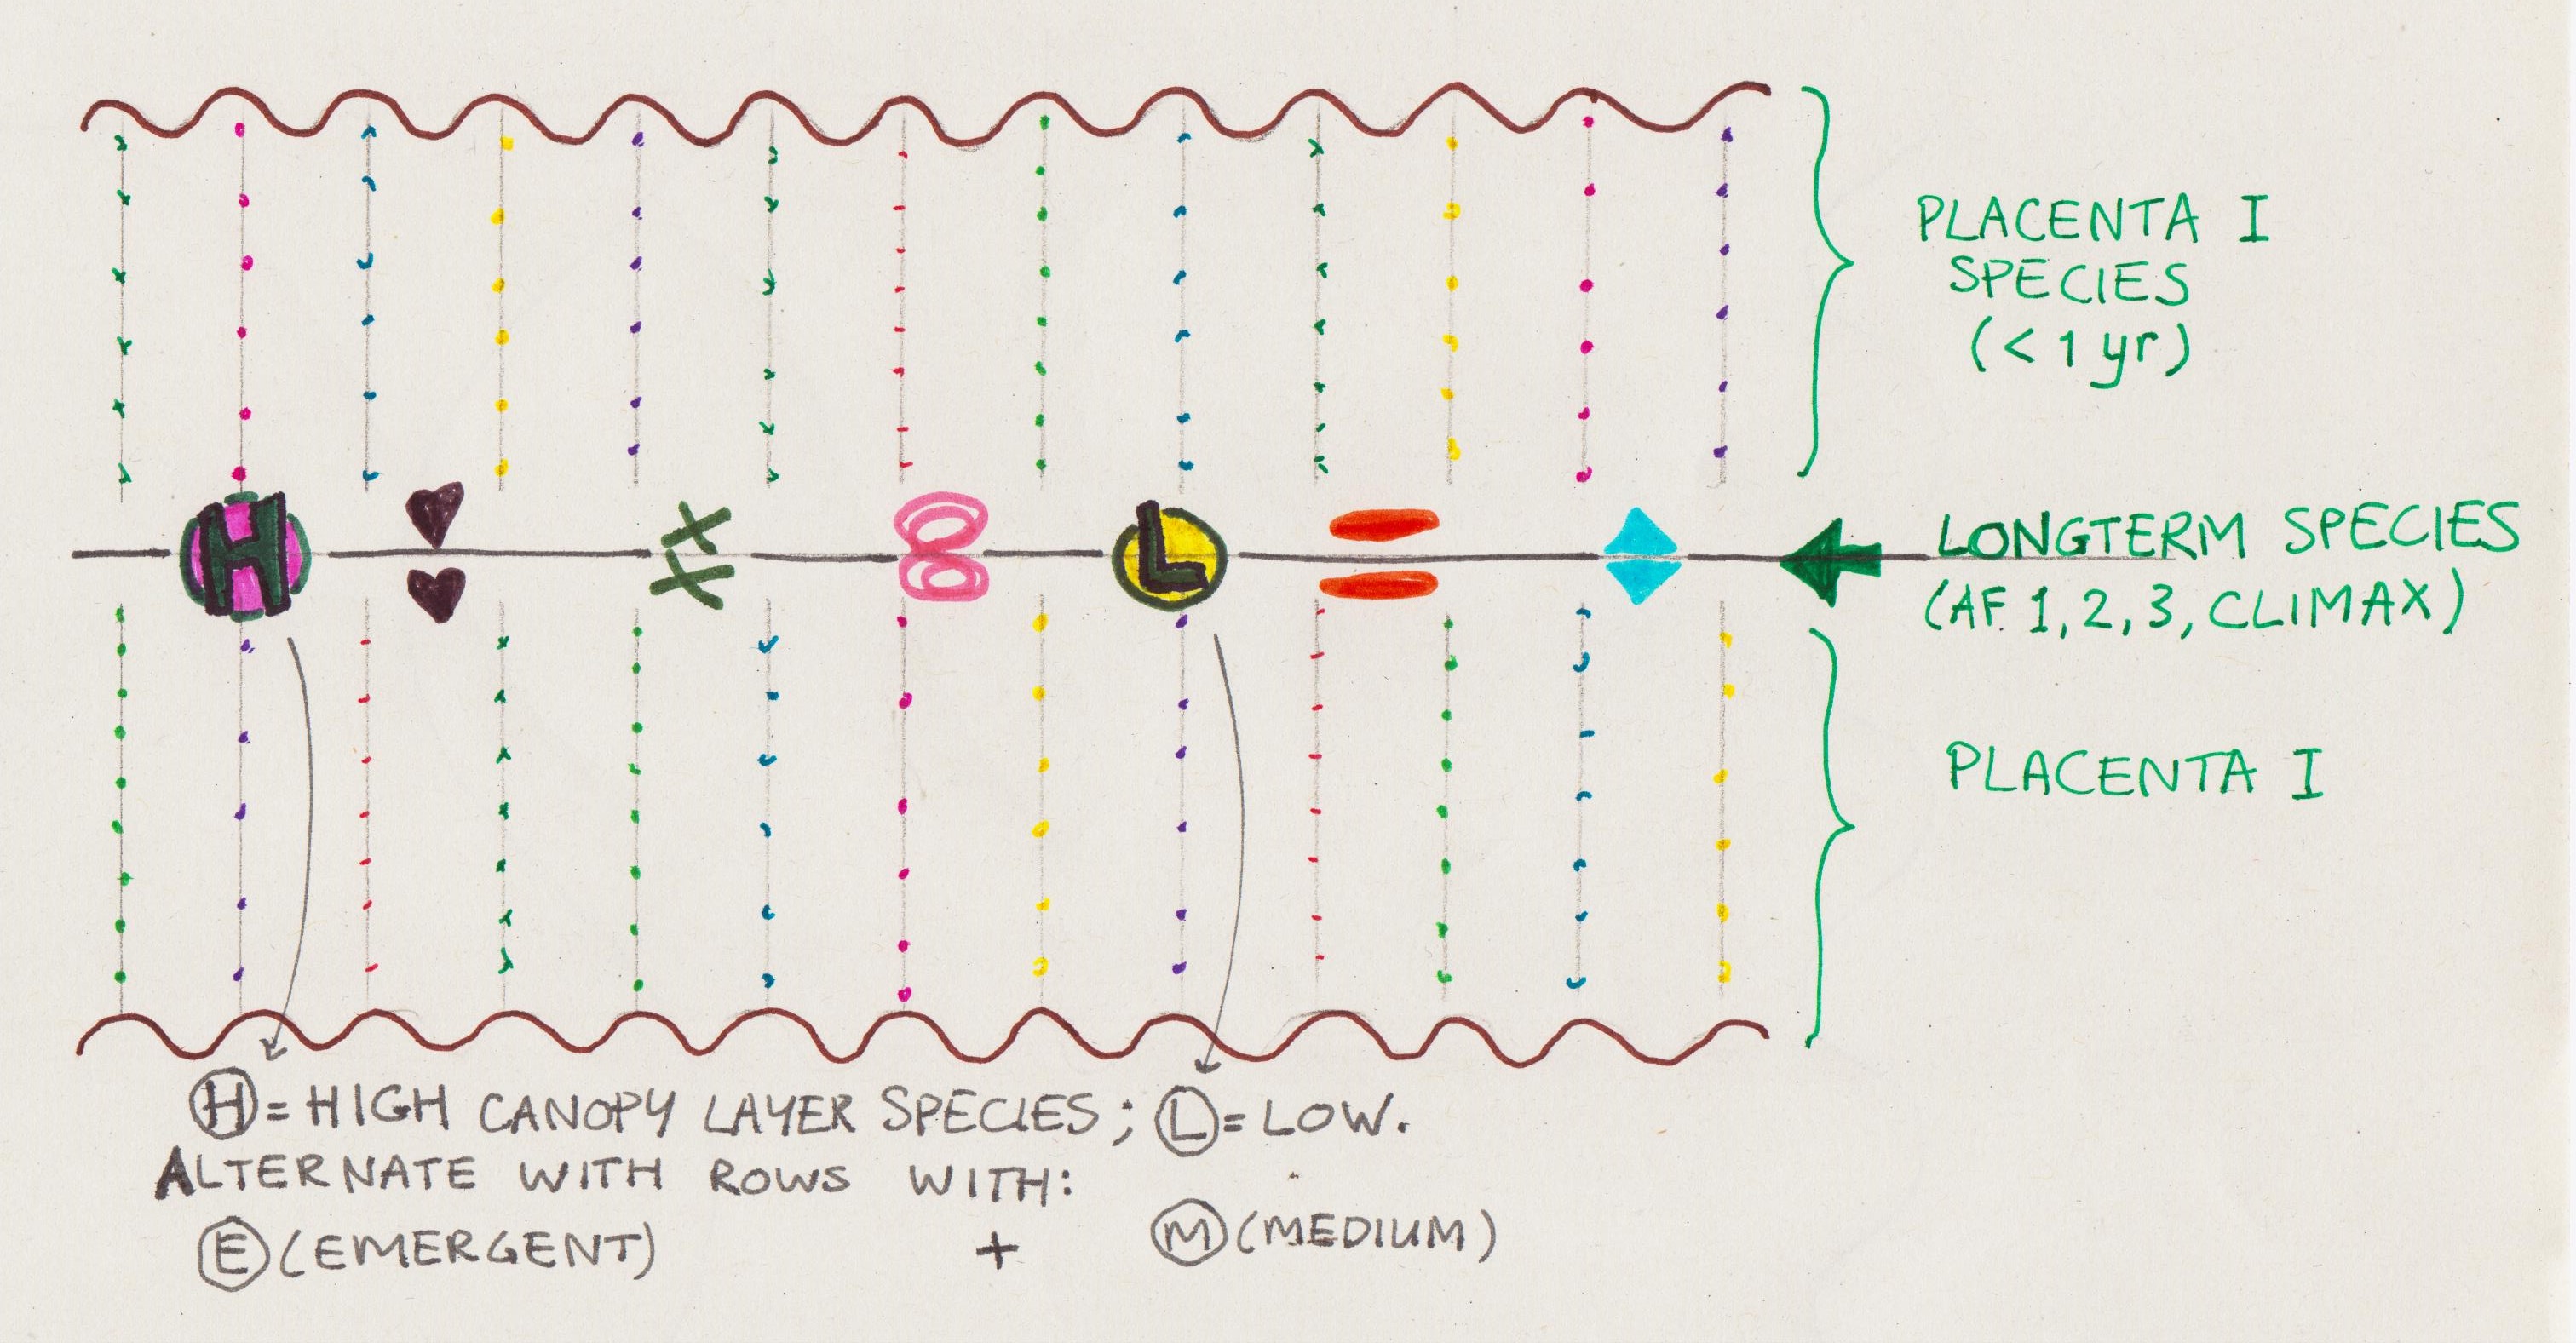 PLACENTA I
SPECIES
(< 1 yr)
H
L
LONGTERM SPECIES
(AF. 1, 2, 3, CLIMAX)
PLACENTA I
H = HIGH CANOPY LAYER SPECIES; L = LOW.
ALTERNATE WITH ROWS WITH:
E (EMERGENT) + M (MEDIUM)